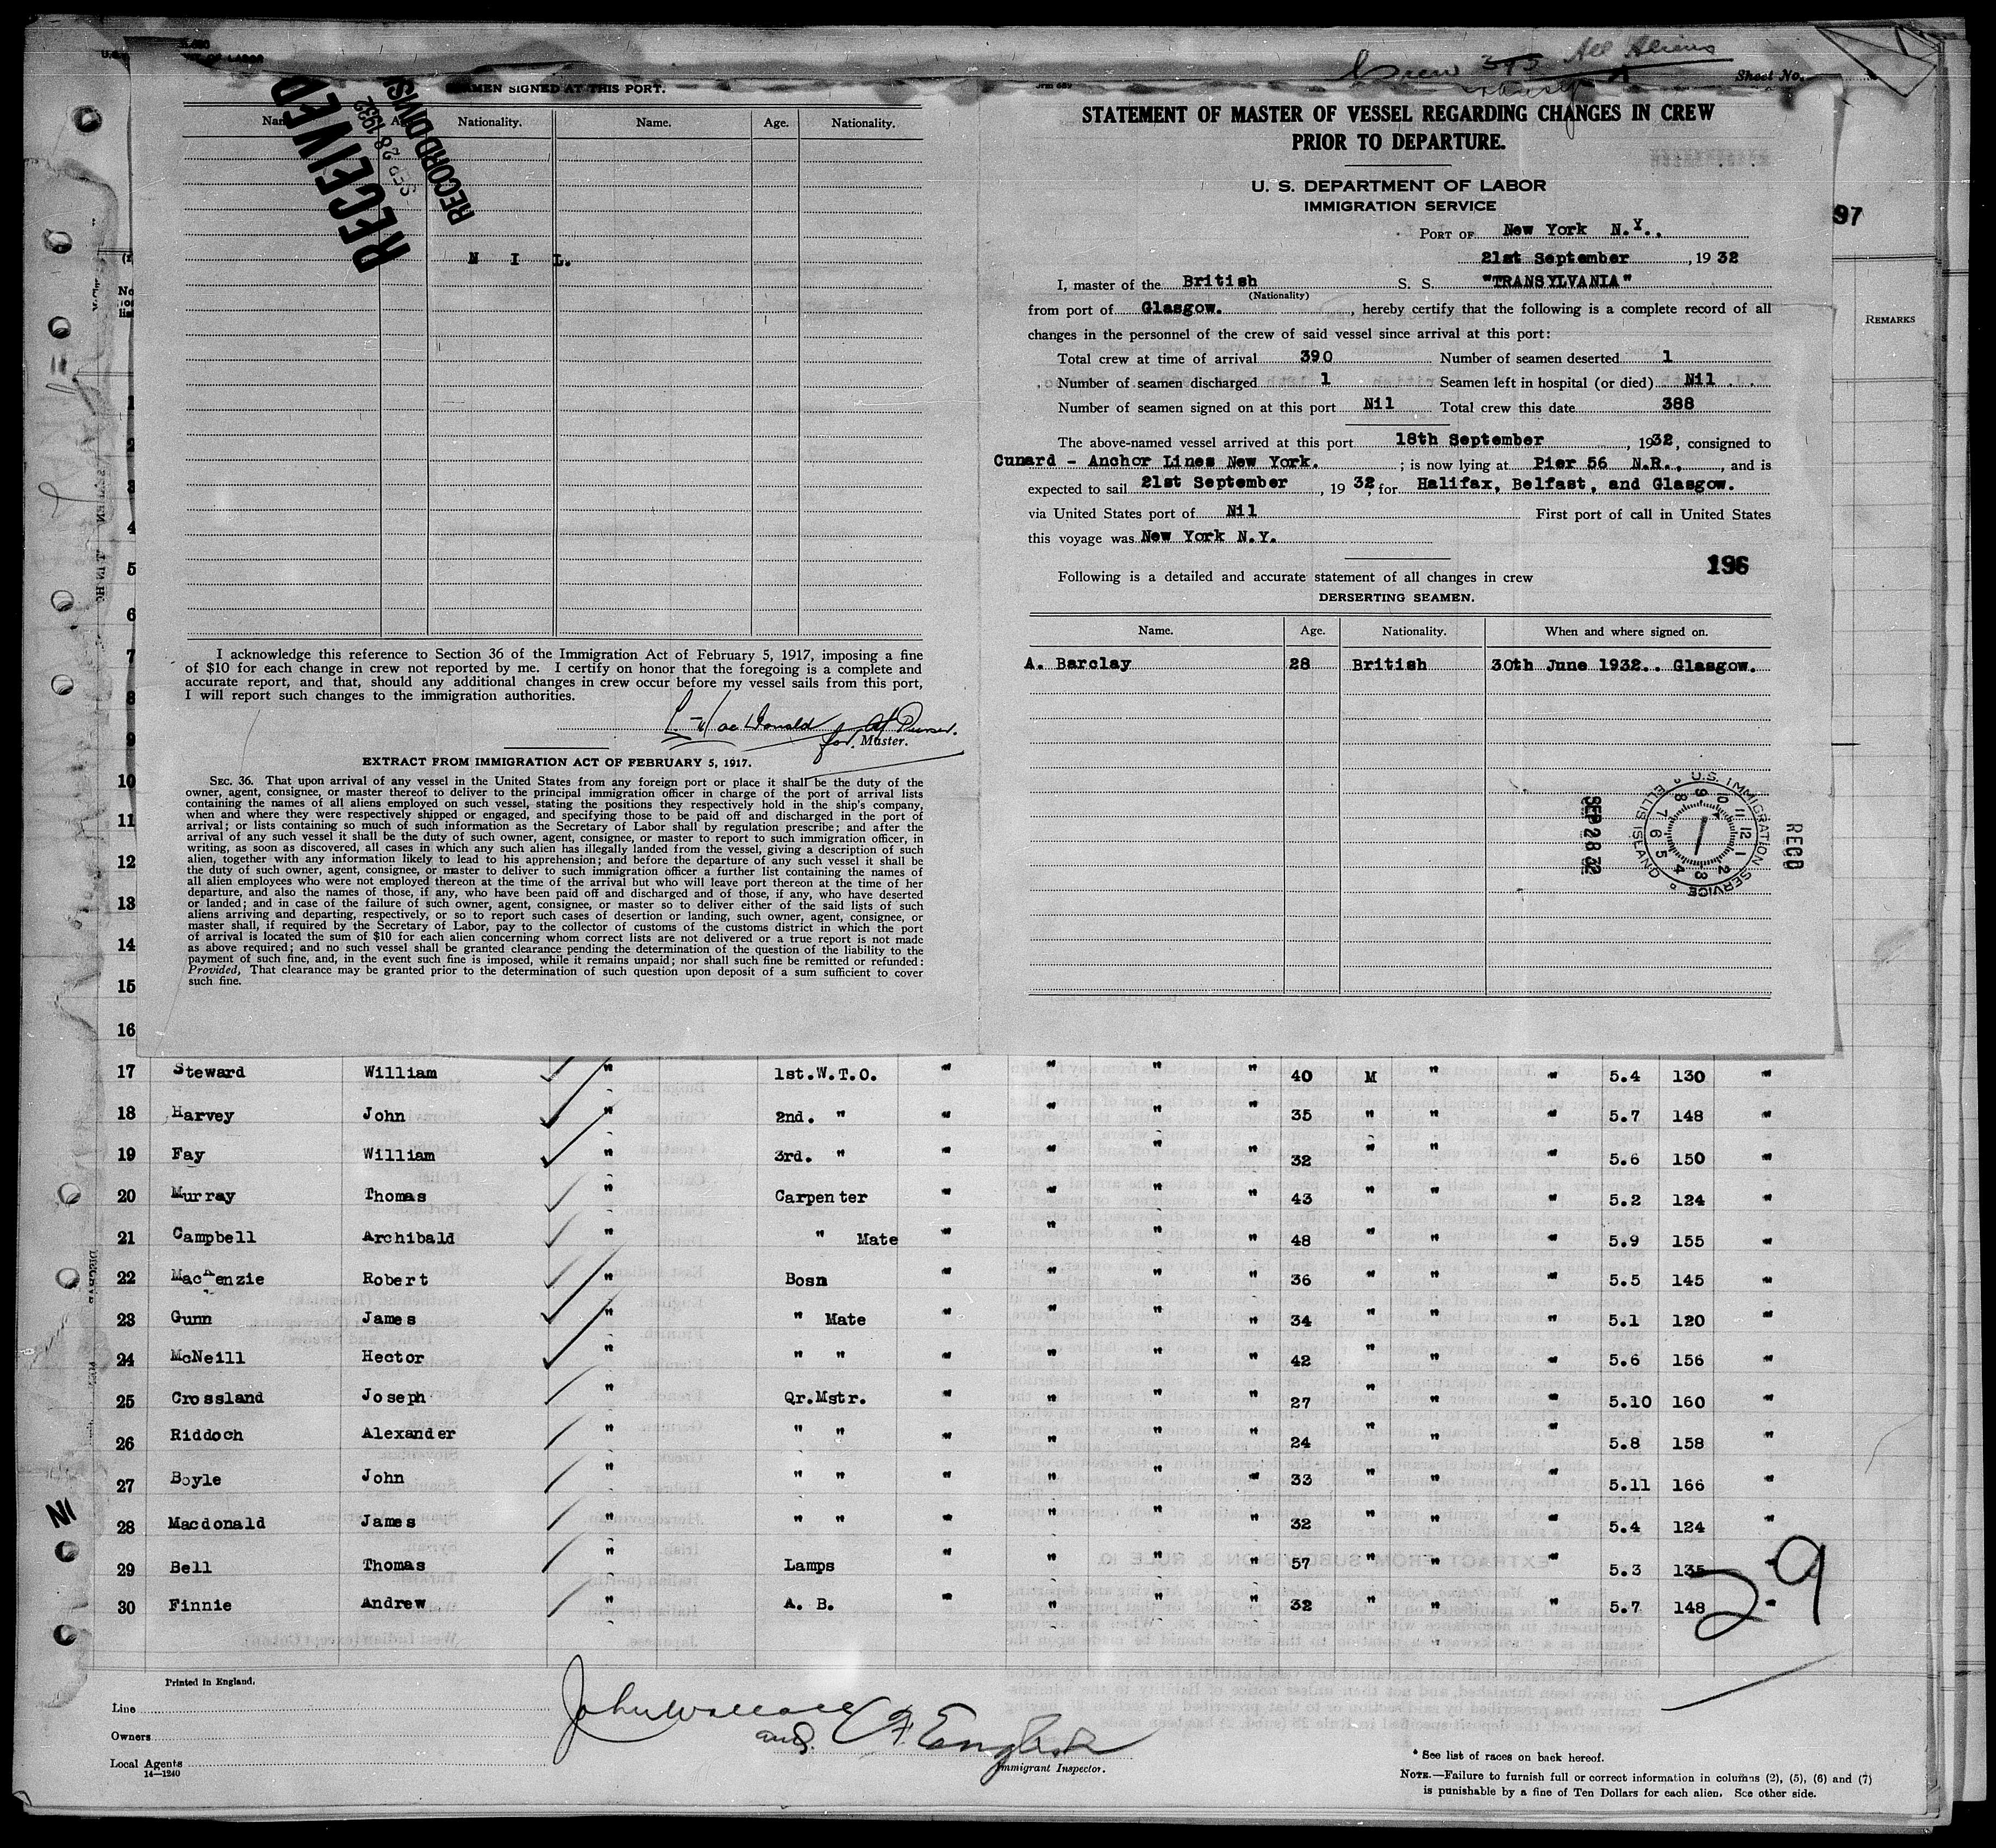 Crew 375 All Aliens
Sheet No.
SEAMEN SIGNED AT THIS PORT.
Name. Age. Nationality. Name. Age. Nationality.
RECEIVED
SEP 28 1932
RECORD DIVIS
N I L.
I acknowledge this reference to Section 36 of the Immigration Act of February 5, 1917, imposing a fine
of $10 for each change in crew not reported by me. I certify on honor that the foregoing is a complete and
accurate report, and that, should any additional changes in crew occur before my vessel sails from this port,
I will report such changes to the immigration authorities.
MacDonald
for Master.
EXTRACT FROM IMMIGRATION ACT OF FEBRUARY 5, 1917.
SEC. 36. That upon arrival of any vessel in the United States from any foreign port or place it shall be the duty of the
owner, agent, consignee, or master thereof to deliver to the principal immigration officer in charge of the port of arrival lists
containing the names of all aliens employed on such vessel, stating the positions they respectively hold in the ship's company,
when and where they were respectively shipped or engaged, and specifying those to be paid off and discharged in the port of
arrival; or lists containing so much of such information as the Secretary of Labor shall by regulation prescribe; and after the
arrival of any such vessel it shall be the duty of such owner, agent, consignee, or master to report to such immigration officer, in
writing, as soon as discovered, all cases in which any such alien has illegally landed from the vessel, giving a description of such
alien, together with any information likely to lead to his apprehension; and before the departure of any such vessel it shall be
the duty of such owner, agent, consignee, or master to deliver to such immigration officer a further list containing the names of
all alien employees who were not employed thereon at the time of the arrival but who will leave port thereon at the time of her
departure, and also the names of those, if any, who have been paid off and discharged and of those, if any, who have deserted
or landed; and in case of the failure of such owner, agent, consignee, or master so to deliver either of the said lists of such
aliens arriving and departing, respectively, or so to report such cases of desertion or landing, such owner, agent, consignee, or
master shall, if required by the Secretary of Labor, pay to the collector of customs of the customs district in which the port
of arrival is located the sum of $10 for each alien concerning whom correct lists are not delivered or a true report is not made
as above required; and no such vessel shall be granted clearance pending the determination of the question of the liability to the
payment of such fine, and, in the event such fine is imposed, while it remains unpaid; nor shall such fine be remitted or refunded:
Provided, That clearance may be granted prior to the determination of such question upon deposit of a sum sufficient to cover
such fine.
STATEMENT OF MASTER OF VESSEL REGARDING CHANGES IN CREW
PRIOR TO DEPARTURE.
U. S. DEPARTMENT OF LABOR
IMMIGRATION SERVICE
PORT OF New York N.Y..
21st September, 1932
I, master of the British S. S. "TRANSYLVANIA"
(Nationality)
from port of Glasgow. , hereby certify that the following is a complete record of all
changes in the personnel of the crew of said vessel since arrival at this port:
Total crew at time of arrival 390 Number of seamen deserted 1
Number of seamen discharged 1 Seamen left in hospital (or died) Nil
Number of seamen signed on at this port Nil Total crew this date 388
The above-named vessel arrived at this port 18th September, 1932, consigned to
Cunard - Anchor Lines New York. ; is now lying at Pier 56 N.R., , and is
expected to sail 21st September, 1932, for Halifax, Belfast, and Glasgow.
via United States port of Nil First port of call in United States
this voyage was New York N.Y.
196
Following is a detailed and accurate statement of all changes in crew
DERSERTING SEAMEN.
Name. Age. Nationality. When and where signed on.
A. Barclay 28 British 30th June 1932.. Glasgow.
SEP 28 32
U.S. IMMIGRATION SERVICE ELLIS ISLAND
1 2 3 4 5 6 7 8 9 10 11 12
RECD
97
REMARKS
1
2
3
4
5
6
7
8
9
10
11
12
13
14
15
16
17 Steward William " 1st.W.T.O. " " " " 40 M " " 5.4 130 "
18 Harvey John " 2nd. " " " " " 35 " " " 5.7 148 "
19 Fay William " 3rd. " " " " " 32 " " " 5.6 150 "
20 Murray Thomas " Carpenter " " " " 43 " " " 5.2 124 "
21 Campbell Archibald " " Mate " " " " 48 " " " 5.9 155 "
22 MacKenzie Robert " Bosn " " " " 36 " " " 5.5 145 "
23 Gunn James " " Mate " " " " 34 " " " 5.1 120 "
24 McNeill Hector " " " " " " " 42 " " " 5.6 156 "
25 Crossland Joseph " Qr.Mstr. " " " " 27 " " " 5.10 160 "
26 Riddoch Alexander " " " " " " " 24 " " " 5.8 158 "
27 Boyle John " " " " " " " 33 " " " 5.11 166 "
28 Macdonald James " " " " " " " 32 " " " 5.4 124 "
29 Bell Thomas " Lamps " " " " 57 " " " 5.3 135 "
30 Finnie Andrew " A. B. " " " " 32 " " " 5.7 148 "
29
Printed in England.
Line
Owners
Local Agents
14—1240
John Wallace
and C F English
Immigrant Inspector.
* See list of races on back hereof.
NOTE.—Failure to furnish full or correct information in columns (2), (5), (6) and (7)
is punishable by a fine of Ten Dollars for each alien. See other side.